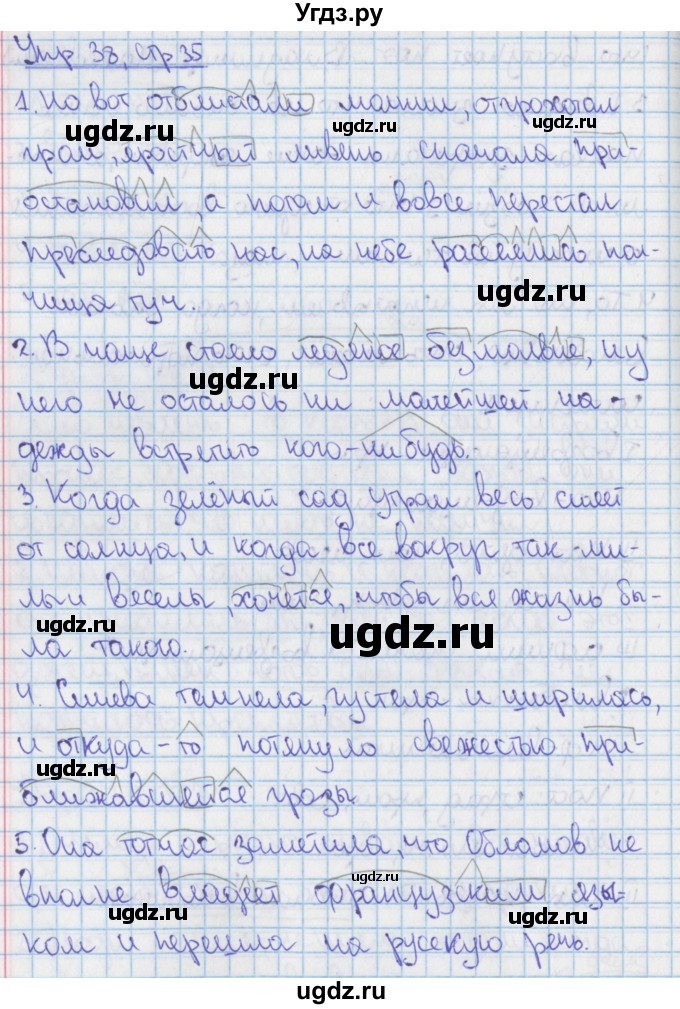 Угдз.ру
Упр 38, стр 35
1. Но вот отблистали молнии, отгрохотал
ugdz.ru ugdz.ru
гром, яростный ливень сначала при-
ugdz.ru
остановил, а потом и вовсе перестал
преследовать нас, на небе рассеялись пол-
ugdz.ru
чища туч.
2. В чаще стояло ледяное безмолвие, и у
ugdz.ru
него не осталось ни малейшей на-
дежды встретить кого-нибудь.
3. Когда зелёный сад утром весь сияет
от солнца, и когда все вокруг так ми-
лы и веселы, хочется, чтобы вся жизнь бы-
ugdz.ru ugdz.ru
ла такого.
4. Синева темнела, густела и ширилась,
и откуда-то потянуло свежестью при-
ugdz.ru ugdz.ru
ближавшейся грозы.
5. Она тотчас заметила, что Обломов не
ugdz.ru
вполне владеет французским язы-
ugdz.ru ugdz.ru
ком и перешла на русскую речь.
ugdz.ru